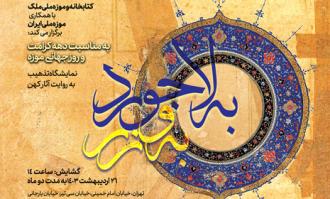 کتابخانه و موزه ملی ملک
با همکاری
موزه ملی ایران
برگزار می‌کند:
به مناسبت دهه کرامت
و روز جهانی موزه
نمایشگاه تذهیب
به روایت آثار کهن
به لاجورد
گشایش: ساعت ۱۴
۲۶ اردیبهشت ۱۴۰۳ به مدت دو ماه
تهران، خیابان امام خمینی، خیابان سی تیر، خیابان یارجانی